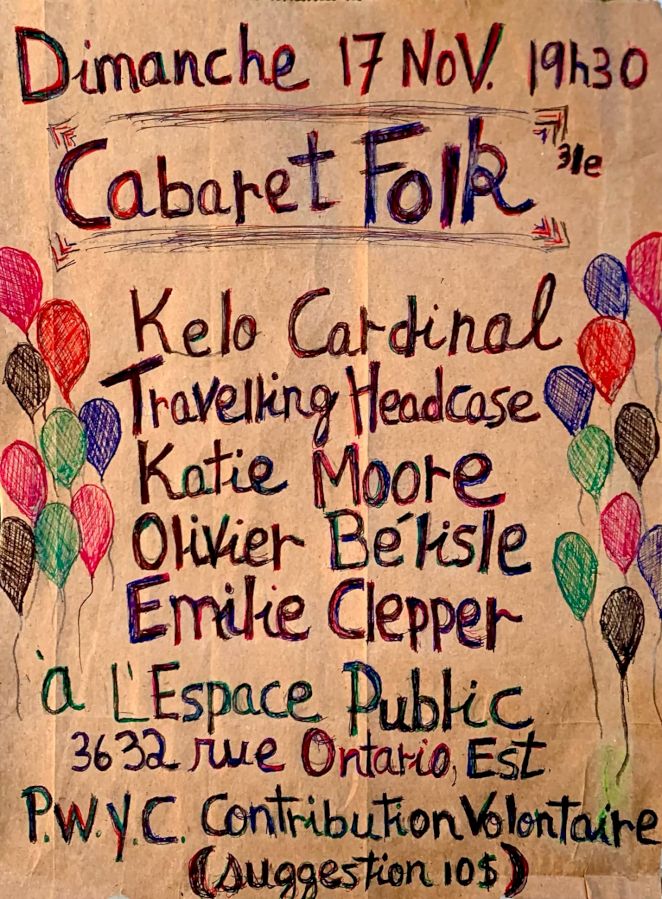 Dimanche 17 Nov. 19h30
Cabaret Folk 31e
Kelo Cardinal
Travelling Headcase
Katie Moore
Olivier Bélisle
Emilie Clepper
à L'Espace Public
3632 rue Ontario, Est
P.W.Y.C. Contribution Volontaire
(suggestion 10$)